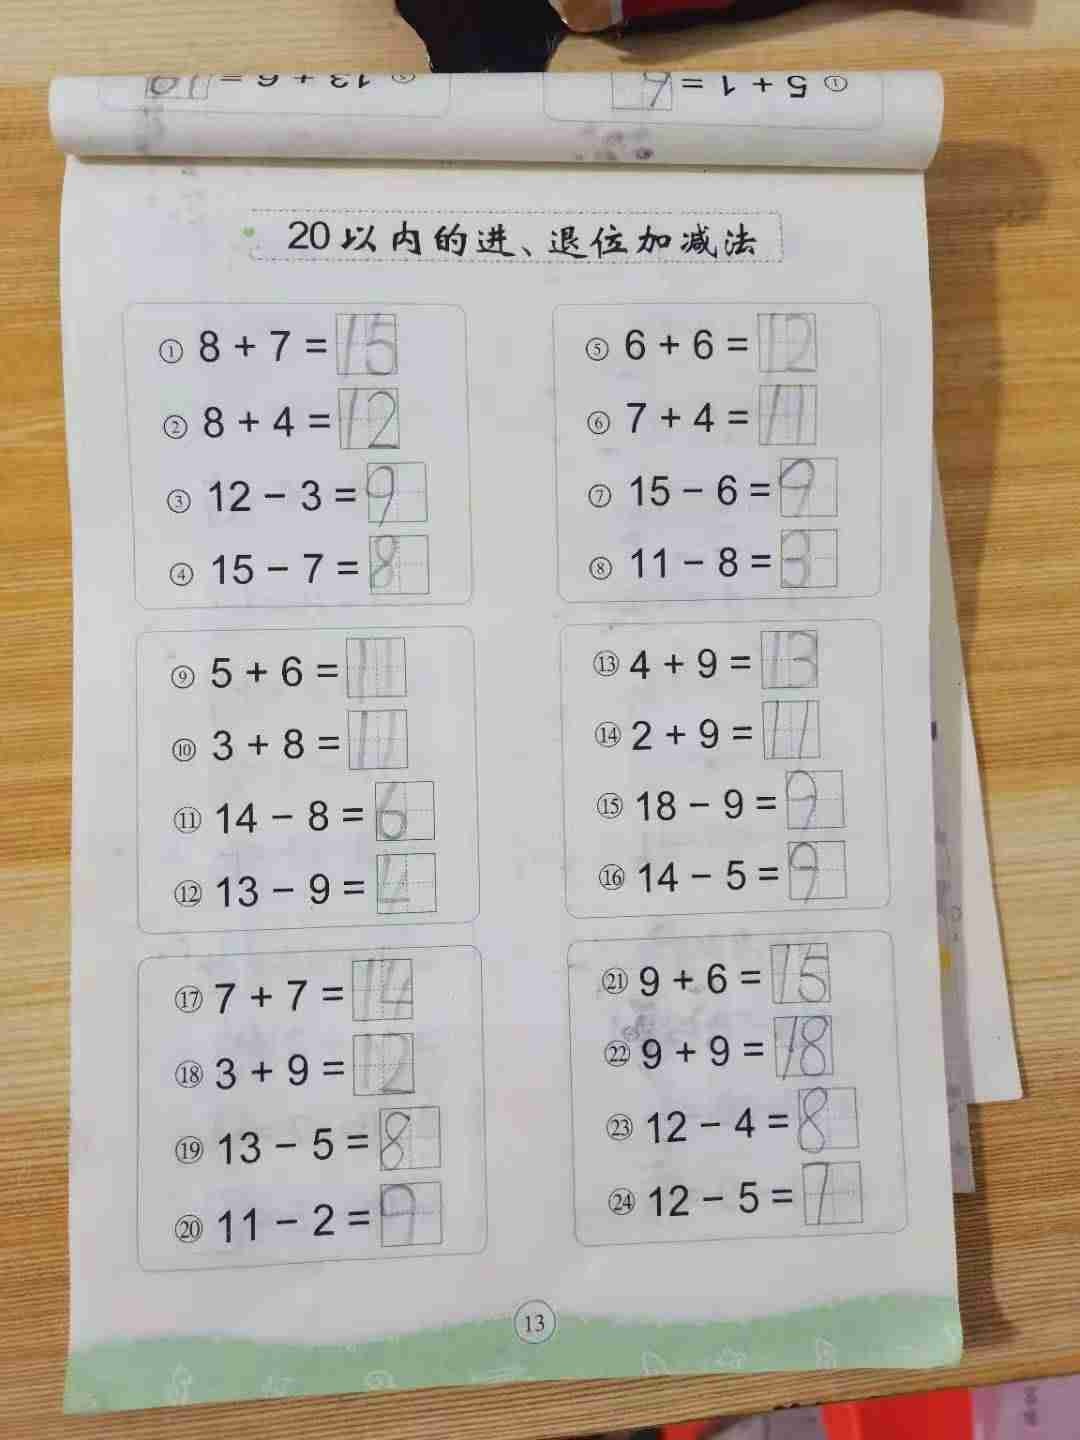 ① 5 + 1 = 6
⑤ 13 + 6 = 19
20以内的进、退位加减法
① 8 + 7 = 15
② 8 + 4 = 12
③ 12 − 3 = 9
④ 15 − 7 = 8
⑤ 6 + 6 = 12
⑥ 7 + 4 = 11
⑦ 15 − 6 = 9
⑧ 11 − 8 = 3
⑨ 5 + 6 = 11
⑩ 3 + 8 = 11
⑪ 14 − 8 = 6
⑫ 13 − 9 = 4
⑬ 4 + 9 = 13
⑭ 2 + 9 = 11
⑮ 18 − 9 = 9
⑯ 14 − 5 = 9
⑰ 7 + 7 = 14
⑱ 3 + 9 = 12
⑲ 13 − 5 = 8
⑳ 11 − 2 = 9
㉑ 9 + 6 = 15
㉒ 9 + 9 = 18
㉓ 12 − 4 = 8
㉔ 12 − 5 = 7
13